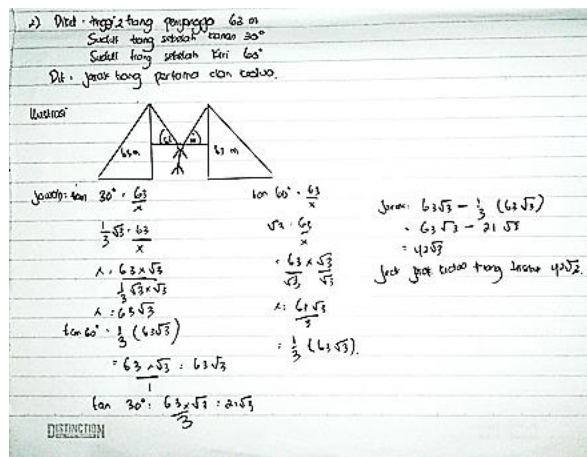 2) Diket : tinggi 2 tiang penyangga 63 m
Sudut tiang sebelah kanan 30°
Sudut tiang sebelah kiri 60°
Dit : jarak tiang pertama dan kedua.
Ilustrasi
63 m
63 m
Jawab : tan 30° = 63/x
1/3 √3 = 63/x
x = 63 × √3 / 1/3 √3 × √3
x = 63√3
tan 60° = 1/3 (63√3)
= 63 × √3 / 1 = 63√3
tan 30° = 63 × √3 / 3 = 21√3
tan 60° = 63/x
√3 = 63/x
= 63/√3 × √3/√3
x = 63 √3 / 3
= 1/3 (63√3).
Jarak : 63√3 - 1/3 (63√3)
= 63√3 - 21√3
= 42√3
jarak kedua tiang 42√3.
DISTINCTION